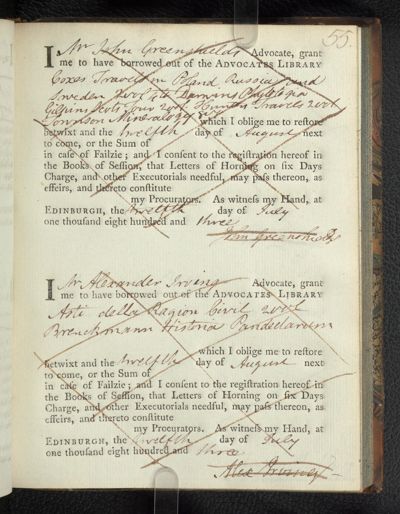 55.
I Mr John Greenshields Advocate, grant
me to have borrowed out of the ADVOCATES LIBRARY
Coxes Travels in Poland Russia and
Sweden
Travels
Mineralogy which I oblige me to reſtore
betwixt and the twelfth day of August next
to come, or the Sum of
in caſe of Failzie; and I conſent to the regiſtration hereof in
the Books of Seſſion, that Letters of Horning on ſix Days
Charge, and other Executorials needful, may paſs thereon, as
effeirs, and thereto conſtitute
my Procurators. As witneſs my Hand, at
EDINBURGH, the twelfth day of July
one thouſand eight hundred and three
John Greenshields
I Mr Alexander Irving Advocate, grant
me to have borrowed out of the ADVOCATES LIBRARY
Asti della Ragion Civil 2 vol
Brenckmann Historia Pandectarum
which I oblige me to reſtore
betwixt and the twelfth day of August next
to come, or the Sum of
in caſe of Failzie; and I conſent to the regiſtration hereof in
the Books of Seſſion, that Letters of Horning on ſix Days
Charge, and other Executorials needful, may paſs thereon, as
effeirs, and thereto conſtitute
my Procurators. As witneſs my Hand, at
EDINBURGH, the twelfth day of July
one thouſand eight hundred and three
Alex Irving